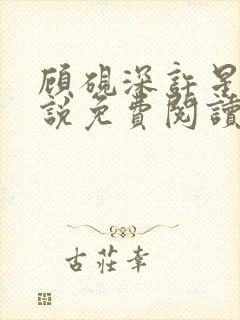 顾硯深許星
說免費閱讀
古莊幸